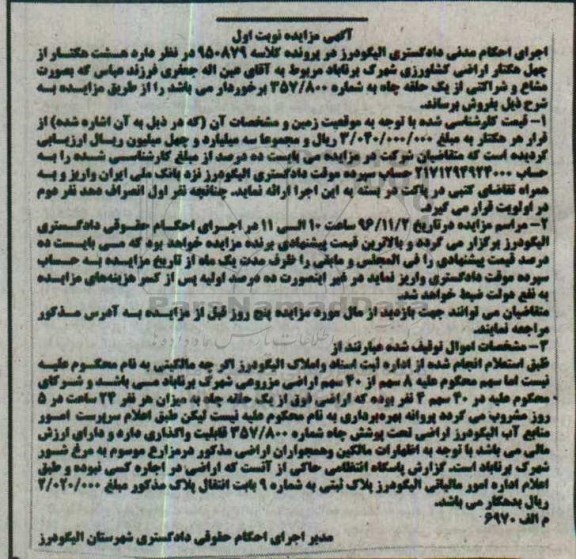 آگهی مزایده نوبت اول
اجرای احکام مدنی دادگستری الیگودرز در پرونده کلاسه ۹۵۰۸۷۹ در نظر دارد هشت هکتار از
چهل هکتار اراضی کشاورزی شهرک برناباد مربوط به آقای عین اله جعفری فرزند عباس که بصورت
مشاع و شراکتی از یک حلقه چاه به شماره ۳۵۷/۸۰۰ برخوردار می باشد را از طریق مزایده به
شرح ذیل بفروش برساند.
۱- قیمت کارشناسی شده با توجه به موقعیت زمین و مشخصات آن (که در ذیل به آن اشاره شده) از
قرار هر هکتار به مبلغ ۳/۰۴۰/۰۰۰/۰۰۰ ریال و مجموعا سه میلیارد و چهل میلیون ریال ارزیابی
گردیده است که متقاضیان شرکت در مزایده می بایست ده درصد از مبلغ کارشناسی شده را به
حساب ۲۱۷۱۲۹۲۹۲۴۰۰۰ حساب سپرده موقت دادگستری الیگودرز نزد بانک ملی ایران واریز و به
همراه تقاضای کتبی در پاکت در بسته به این اجرا ارائه نماید. چنانچه نفر اول انصراف دهد نفر دوم
در اولویت قرار می گیرد.
۲- مراسم مزایده در تاریخ ۹۶/۱۱/۲ ساعت ۱۰ الی ۱۱ در اجرای احکام حقوقی دادگستری
الیگودرز برگزار می گردد و بالاترین قیمت پیشنهادی برنده مزایده خواهد بود که می بایست ده
درصد قیمت پیشنهادی را فی المجلس و مابقی را ظرف مدت یک ماه از تاریخ مزایده به حساب
سپرده موقت دادگستری واریز نماید در غیر اینصورت ده درصد اولیه پس از کسر هزینه‌های مزایده
به نفع دولت ضبط خواهد شد.
متقاضیان می توانند جهت بازدید از مال مورد مزایده پنج روز قبل از مزایده به آدرس مذکور
مراجعه نمایند.
۳- مشخصات اموال توقیف شده عبارتند از
طبق استعلام انجام شده از اداره ثبت اسناد واملاک الیگودرز اگر چه مالکیتی به نام محکوم علیه
نیست اما سهم محکوم علیه ۸ سهم از ۴۰ سهم اراضی مزروعی شهرک برناباد می باشد و شرکای
محکوم علیه در ۴۰ سهم ۴ نفر بوده که اراضی فوق از یک حلقه چاه به میزان هر نفر ۲۴ ساعت در ۵
روز مشروب می گردد پروانه بهره‌برداری به نام محکوم علیه نیست لیکن طبق اعلام سرپرست امور
منابع آب الیگودرز اراضی تحت پوشش چاه شماره ۳۵۷/۸۰۰ قابلیت واگذاری دارد و دارای ارزش
مالی می باشد با توجه به اظهارات مالکین وهمجواران اراضی مذکور درمزارع موسوم به مرغ شور
شهرک برناباد است. گزارش پاسگاه انتظامی حاکی از آنست که اراضی در اجاره کسی نبوده و طبق
اعلام اداره امور مالیاتی الیگودرز پلاک ثبتی به شماره ۹ بابت انتقال پلاک مذکور مبلغ ۲/۰۲۰/۰۰۰
ریال بدهکار می باشد.
م الف ۶۹۷۰
مدیر اجرای احکام حقوقی دادگستری شهرستان الیگودرز